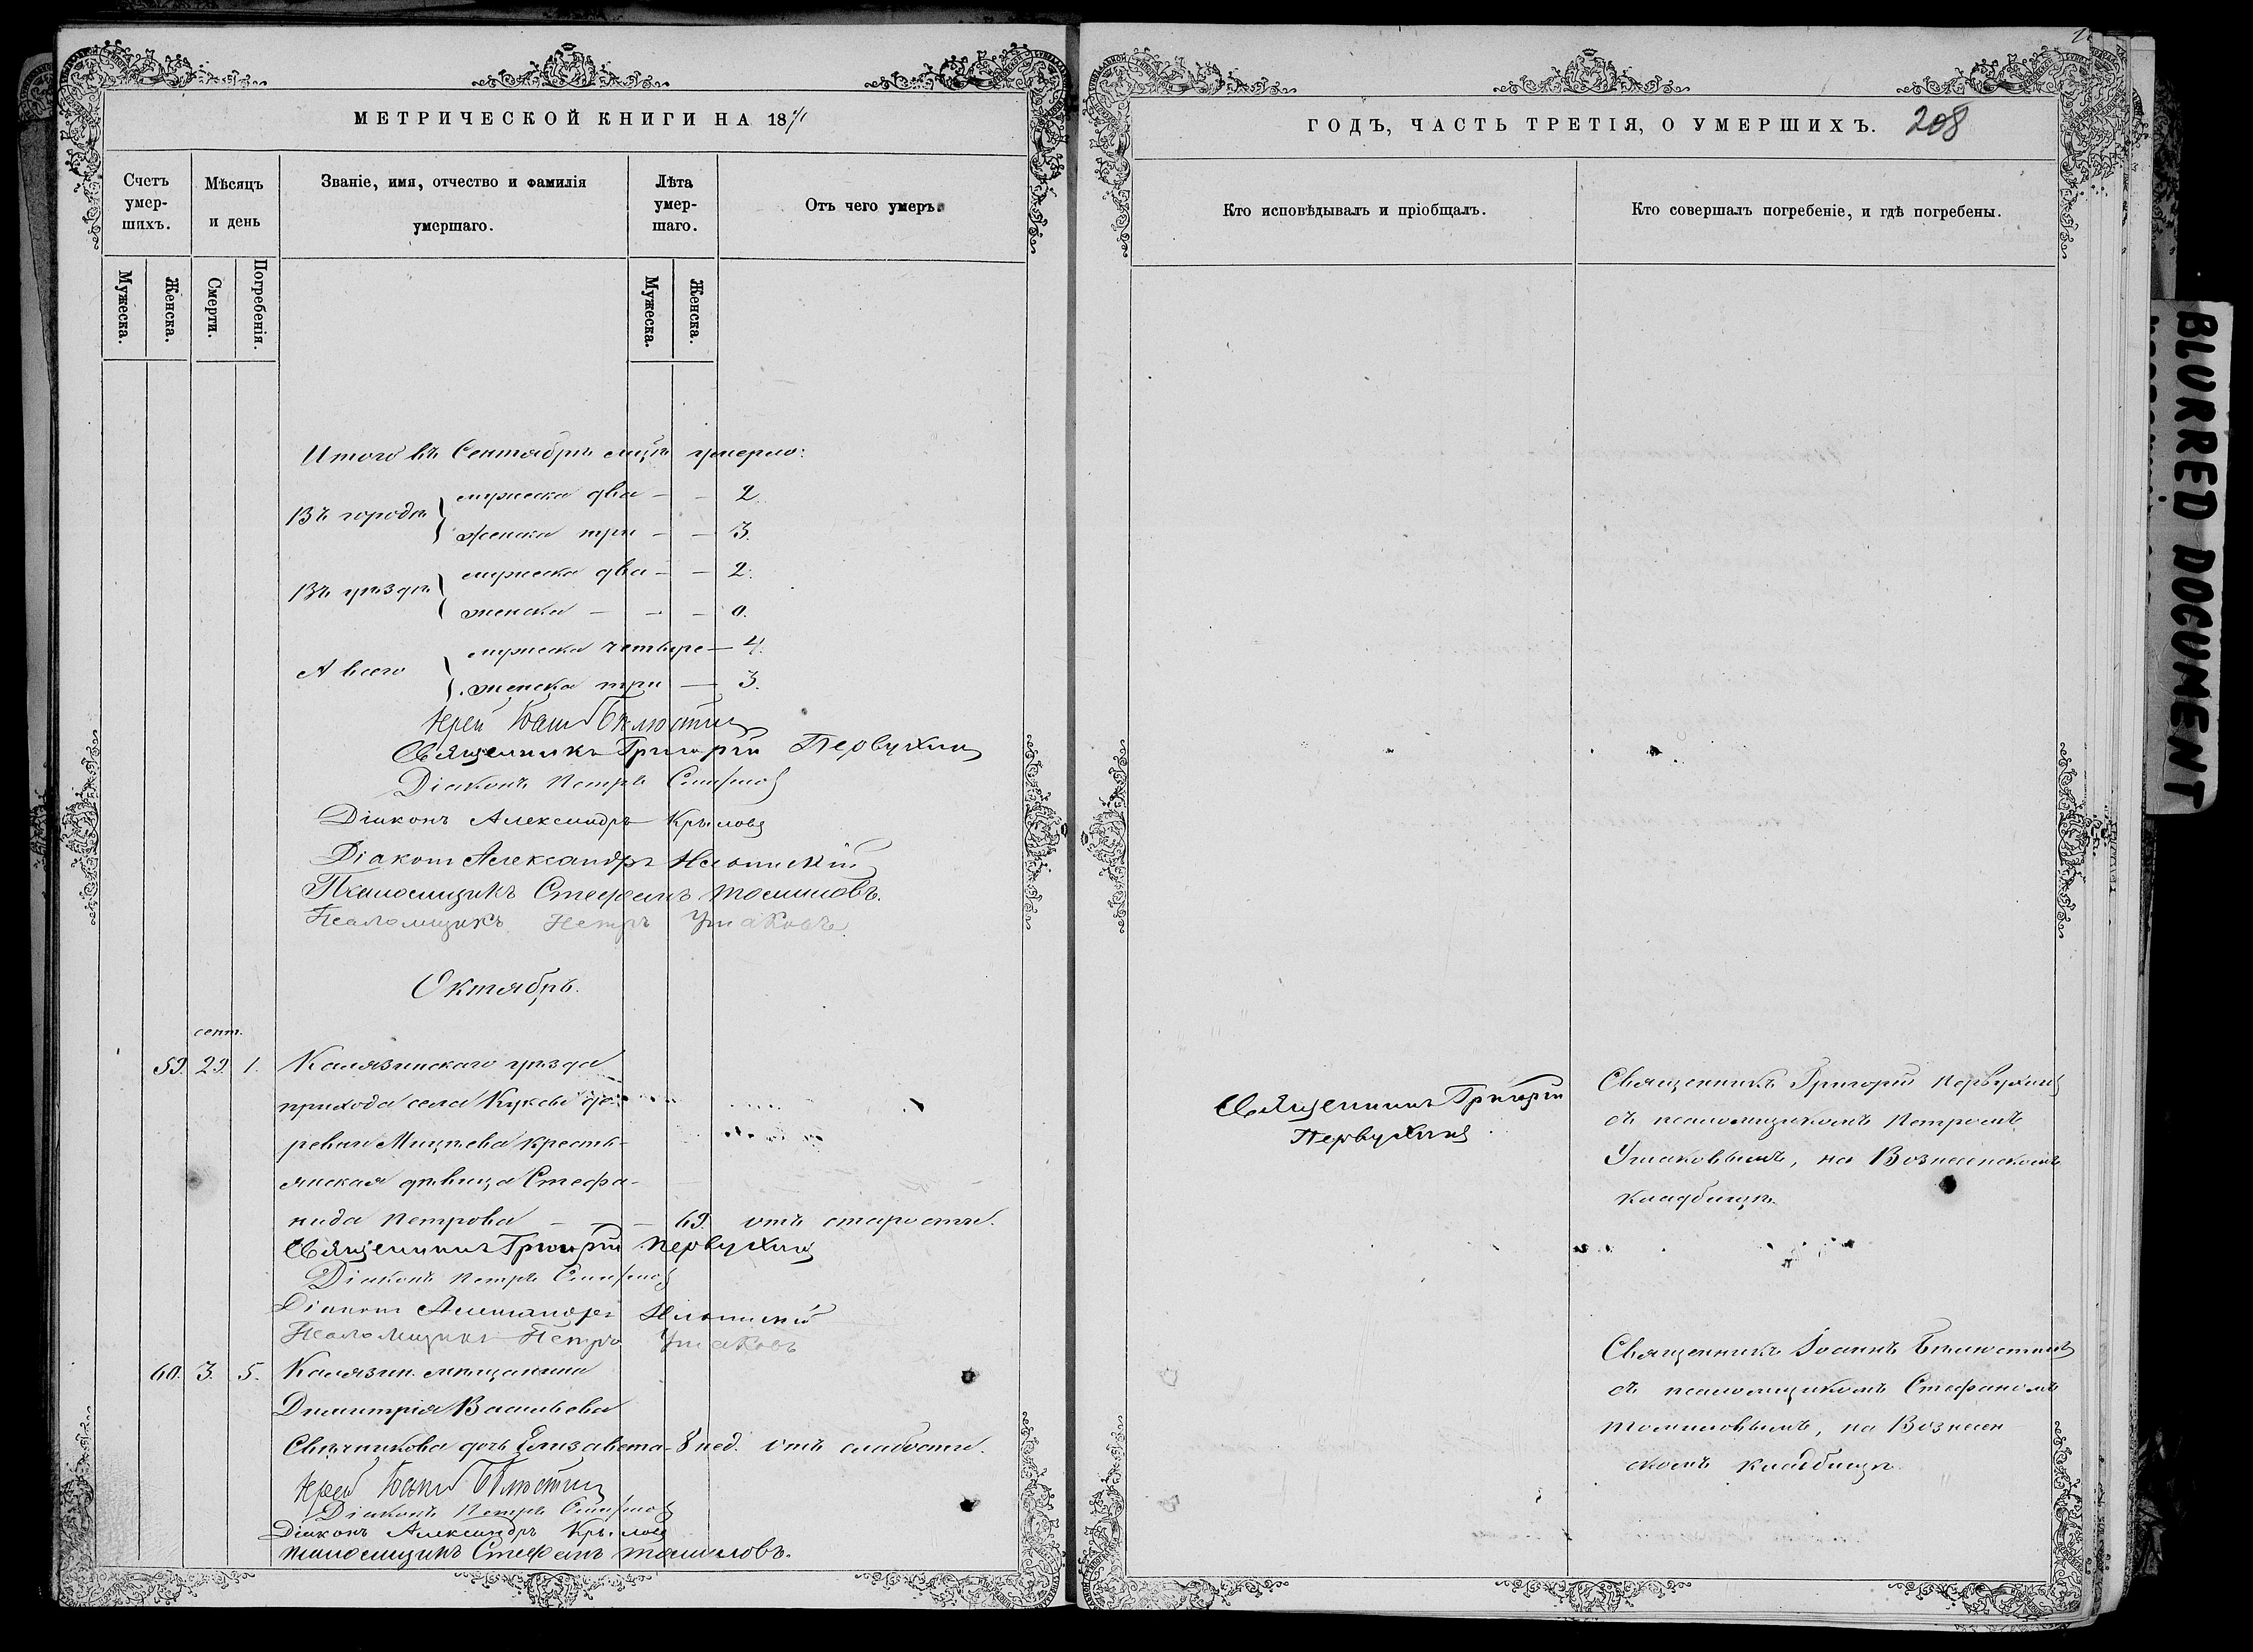 МЕТРИЧЕСКОЙ КНИГИ НА 1871
Счетъ умер-шихъ.
Мѣсяцъ и день
Званіе, имя, отчество и фамилія умершаго.
Лѣта умер-шаго.
Отъ чего умеръ.
Мужеска.
Женска.
Смерти.
Погребенія.
Мужеска.
Женска.
Итого въ Сентябрѣ мцѣ умерло:
Въ городѣ
мужеска два — — 2.
женска три — — 3.
Въ уѣздѣ
мужеска два — — 2.
женска — — — 0.
А всего
мужеска четыре — 4.
женска три — 3.
Іерей Іоаннъ Бѣлюстинъ
Священникъ Григорій Первухинъ
Діаконъ Петръ Смирновъ
Діаконъ Александръ Крыловъ
Діаконъ Александръ
Псаломщикъ Стефанъ Томиловъ.
Псаломщикъ Петръ Ушаковъ.
Октябрь.
сент.
59. 29. 1. Калязинскаго уѣзда
прихода села Кукобы де-
ревни крестья-
янская дѣвица Стефа-
нида Петрова — — — 69. отъ старости.
Священникъ Григорій Первухинъ
Діаконъ Петръ Смирновъ
Діаконъ Александръ
Псаломщикъ Петръ Ушаковъ
60. 3. 5. Калязин. мѣщанина
Димитрія Васильева
Свѣчникова дочь Елизавета — 8 нед. отъ слабости.
Іерей Іоаннъ Бѣлюстинъ
Діаконъ Петръ Смирновъ
Діаконъ Александръ Крыловъ
псаломщикъ Стефанъ Томиловъ.
ГОДЪ, ЧАСТЬ ТРЕТІЯ, О УМЕРШИХЪ. 208
Кто исповѣдывалъ и пріобщалъ.
Кто совершалъ погребеніе, и гдѣ погребены.
Священникъ Григорій
Первухинъ
Священникъ Григорій Первухинъ
съ псаломщикомъ Петромъ
Ушаковымъ, на Вознесенскомъ
кладбищѣ.
Священникъ Іоаннъ Бѣлюстинъ
съ псаломщикомъ Стефаномъ
Томиловымъ, на Вознесен
скомъ кладбищѣ
BLURRED DOCUMENT